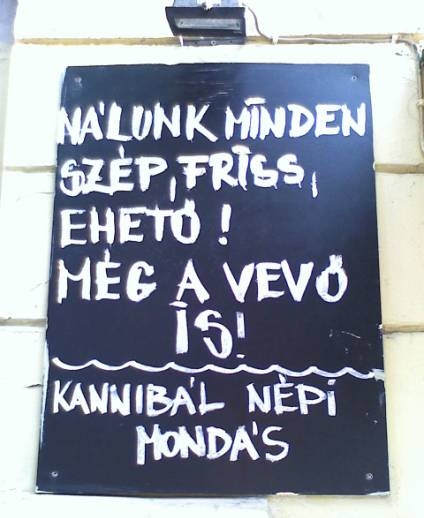 NÁLUNK MINDEN
SZÉP, FRISS,
EHETŐ!
MÉG A VEVŐ
IS!
KANNIBÁL NÉPI
MONDÁS